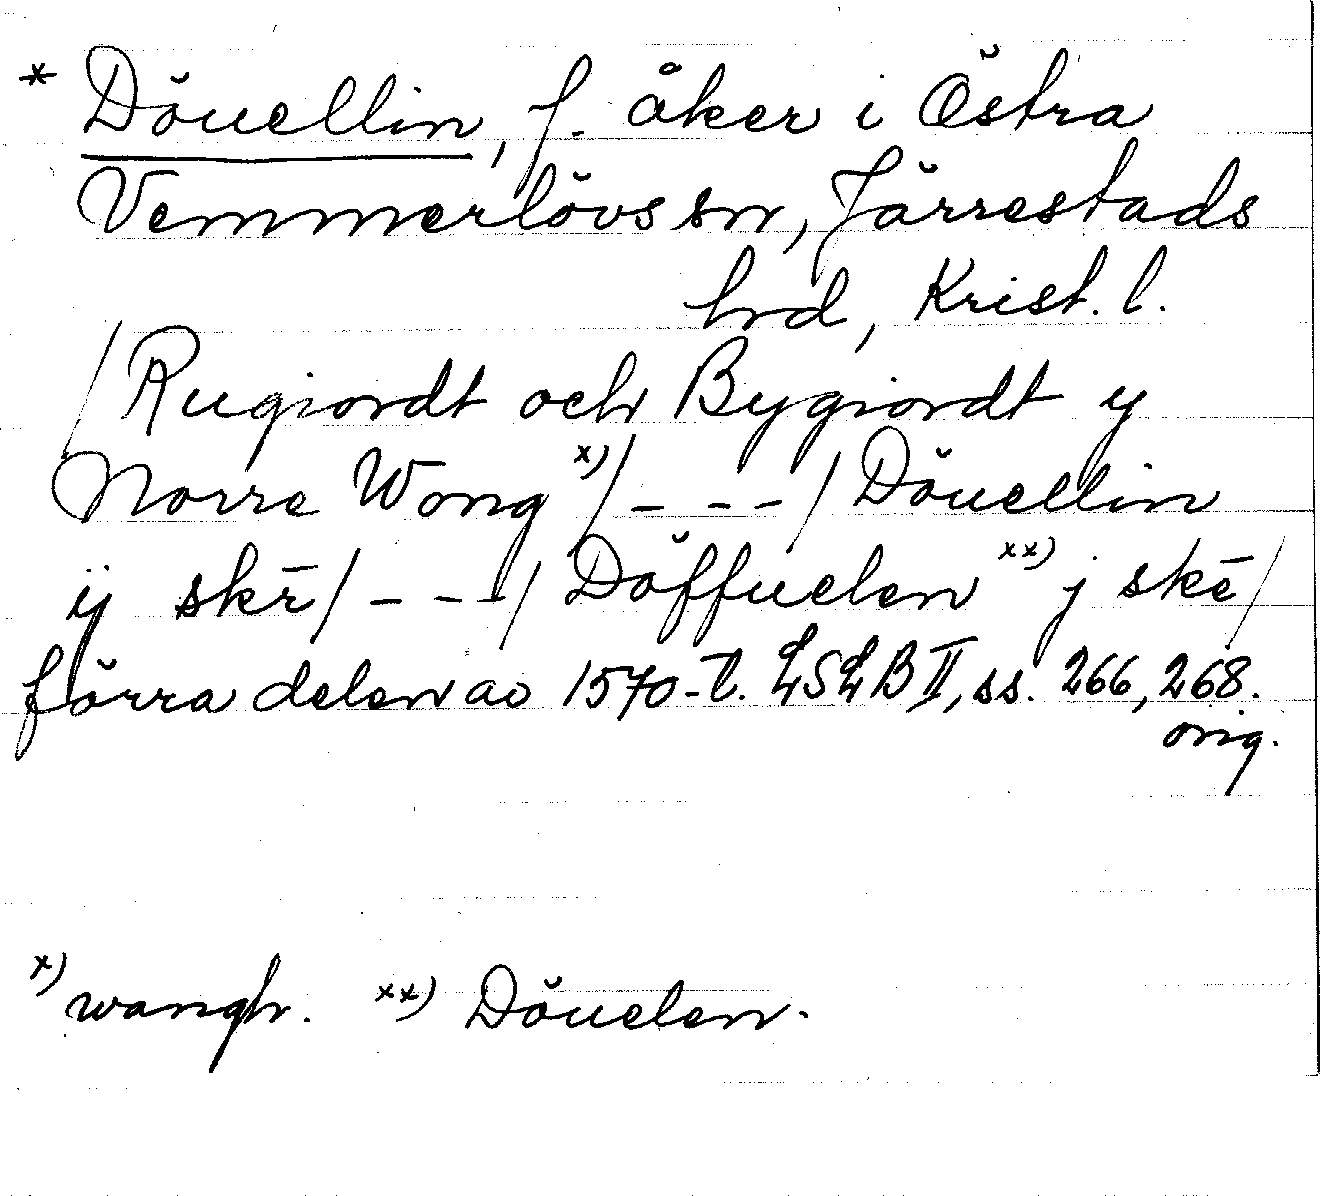 * Döuellin, f. åker i Östra
Vemmerlövs sn, Järrestads
hrd, Krist. l.
/Rugiordt och Bygiordt y
Norre Wong x)/_ _ _/Döuellin
ÿ skē/_ _ _/Döffuelen xx) j skē/
förra delen av 1570-t. LSLB II, ss. 266, 268.
orig.
x) wangh. xx) Döuelen.